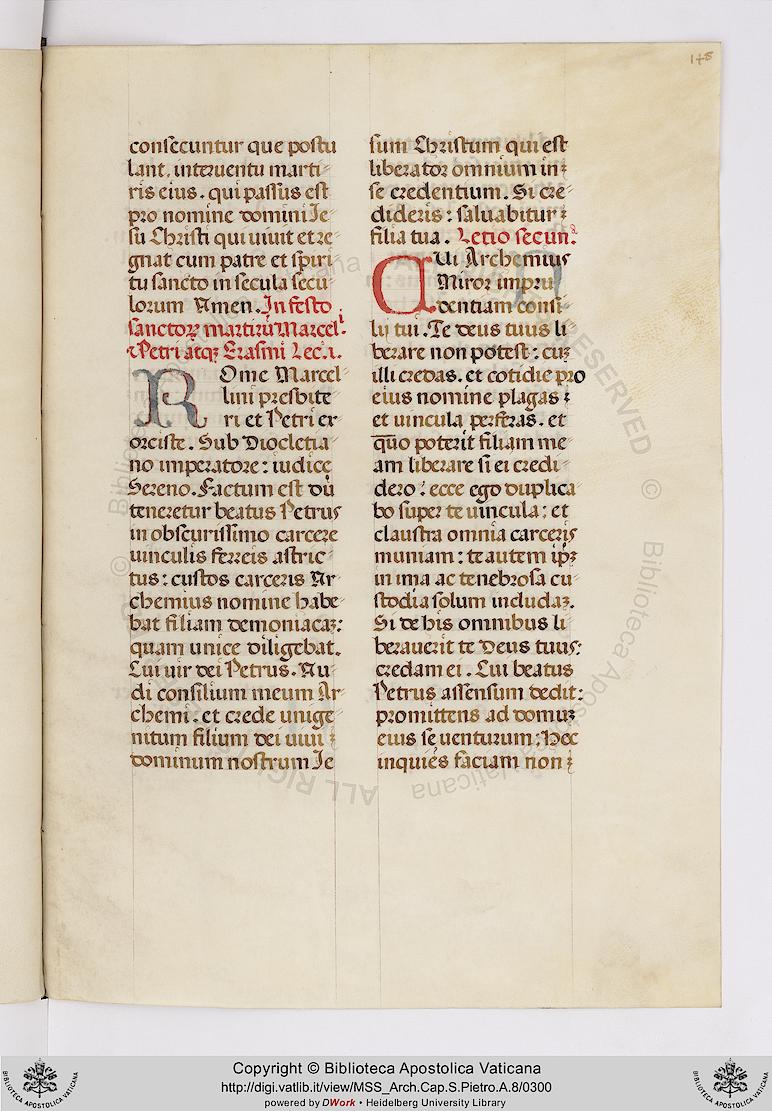 148
consecuntur que postu
lant. interuentu marti
ris eius. qui passus est
pro nomine domini Ie
su Christi qui uiuit et re
gnat cum patre et spiri
tu sancto in secula secu
lorum Amen. In festo
sanctoꝝ martirū Marcel.
⁊ Petri atqꝫ Erasmi Lec. i.
Rome Marcel
lini presbite
ri et Petri ex
orciste. Sub Diocletia
no imperatore: iudice
Sereno. Factum est dū
teneretur beatus Petrus
in obscurissimo carcere
uinculis ferreis astric
tus: custos carceris Ar
chemius nomine habe
bat filiam demoniacaꝫ:
quam unice diligebat.
Cui uir dei Petrus. Au
di consilium meum Ar
chemi. et crede unige
nitum filium dei uiui
dominum nostrum Ie
sum Christum qui est
liberator omnium in
se credentium. Si cre
dideris: saluabitur
filia tua. Lectio secun.ᵃ
Cui Archemius
Miror impru
dentiam consi
lii tui. Te deus tuus li
berare non potest: cuꝫ
illi credas. et cotidie pro
eius nomine plagas
et uincula perferas. et
quō poterit filiam me
am liberare si ei credi
dero? ecce ego duplica
bo super te uincula: et
claustra omnia carceris
muniam: te autem ip̄ꝫ
in ima ac tenebrosa cu
stodia solum includaꝫ.
Si de his omnibus li
berauerit te Deus tuus:
credam ei. Cui beatus
Petrus assensum dedit:
promittens ad domuꝫ
eius se uenturum; Hec
inquiés faciam non
Copyright © Biblioteca Apostolica Vaticana
http://digi.vatlib.it/view/MSS_Arch.Cap.S.Pietro.A.8/0300
powered by DWork • Heidelberg University Library
BIBLIOTECA APOSTOLICA VATICANA
BIBLIOTECA APOSTOLICA VATICANA
© Biblioteca Apostolica Vaticana
ALL RIGHTS RESERVED